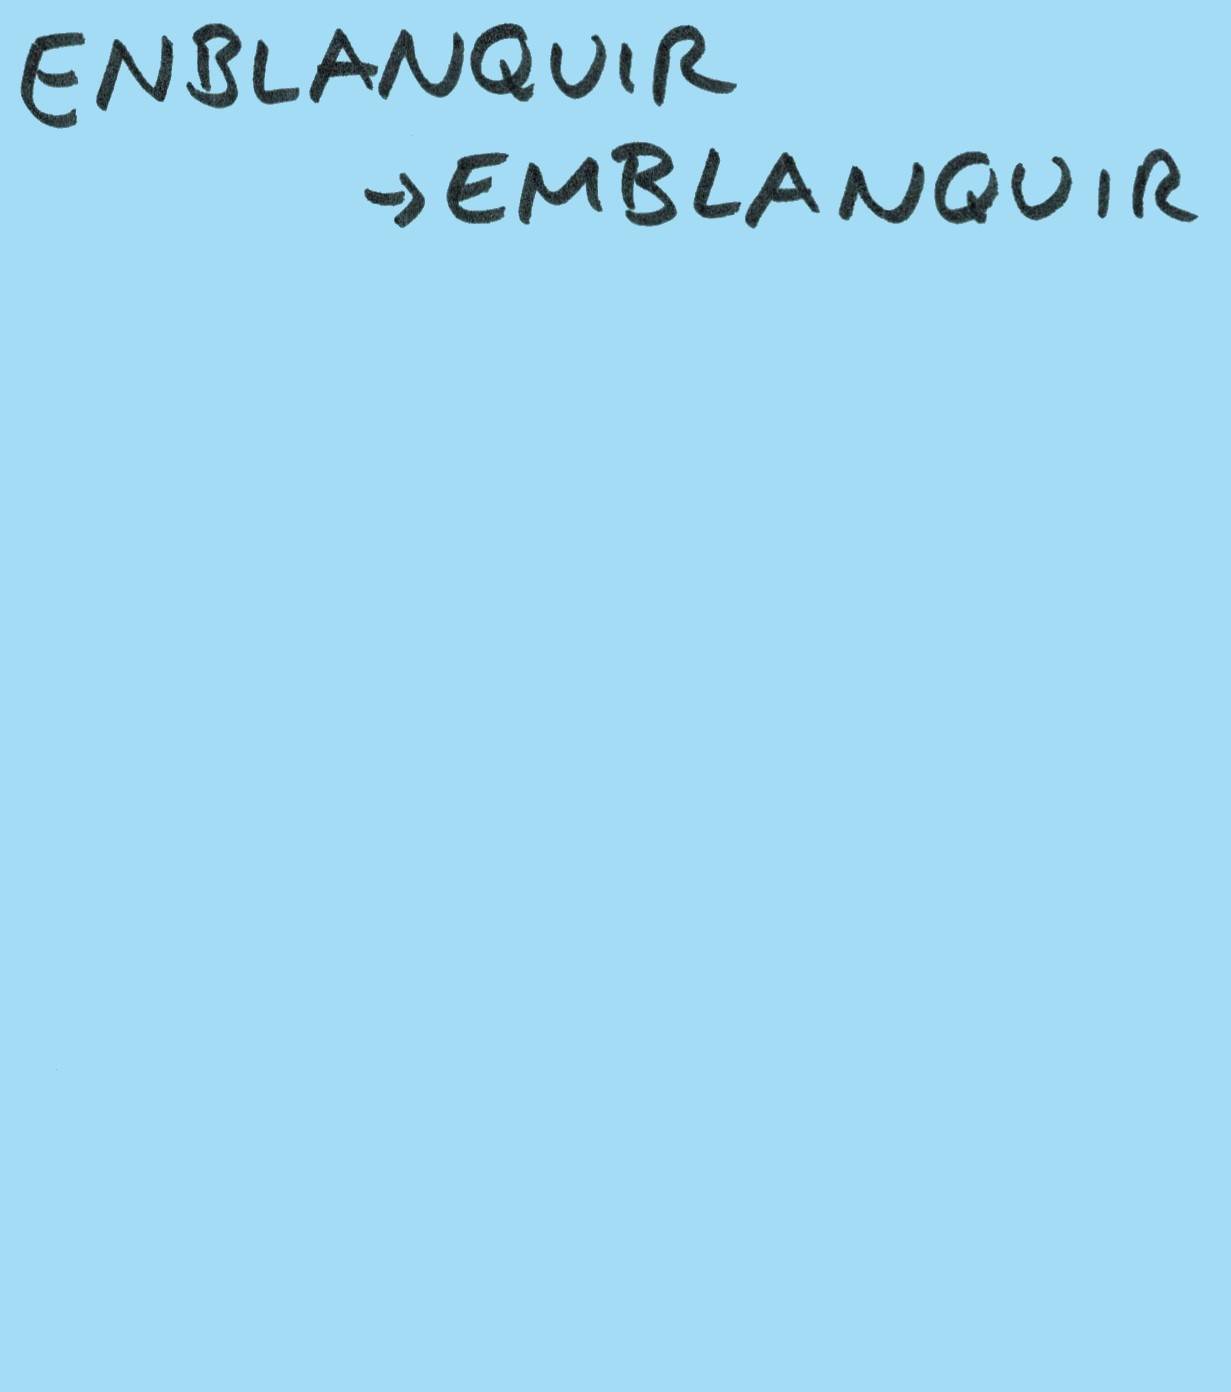 ENBLANQUIR
→EMBLANQUIR